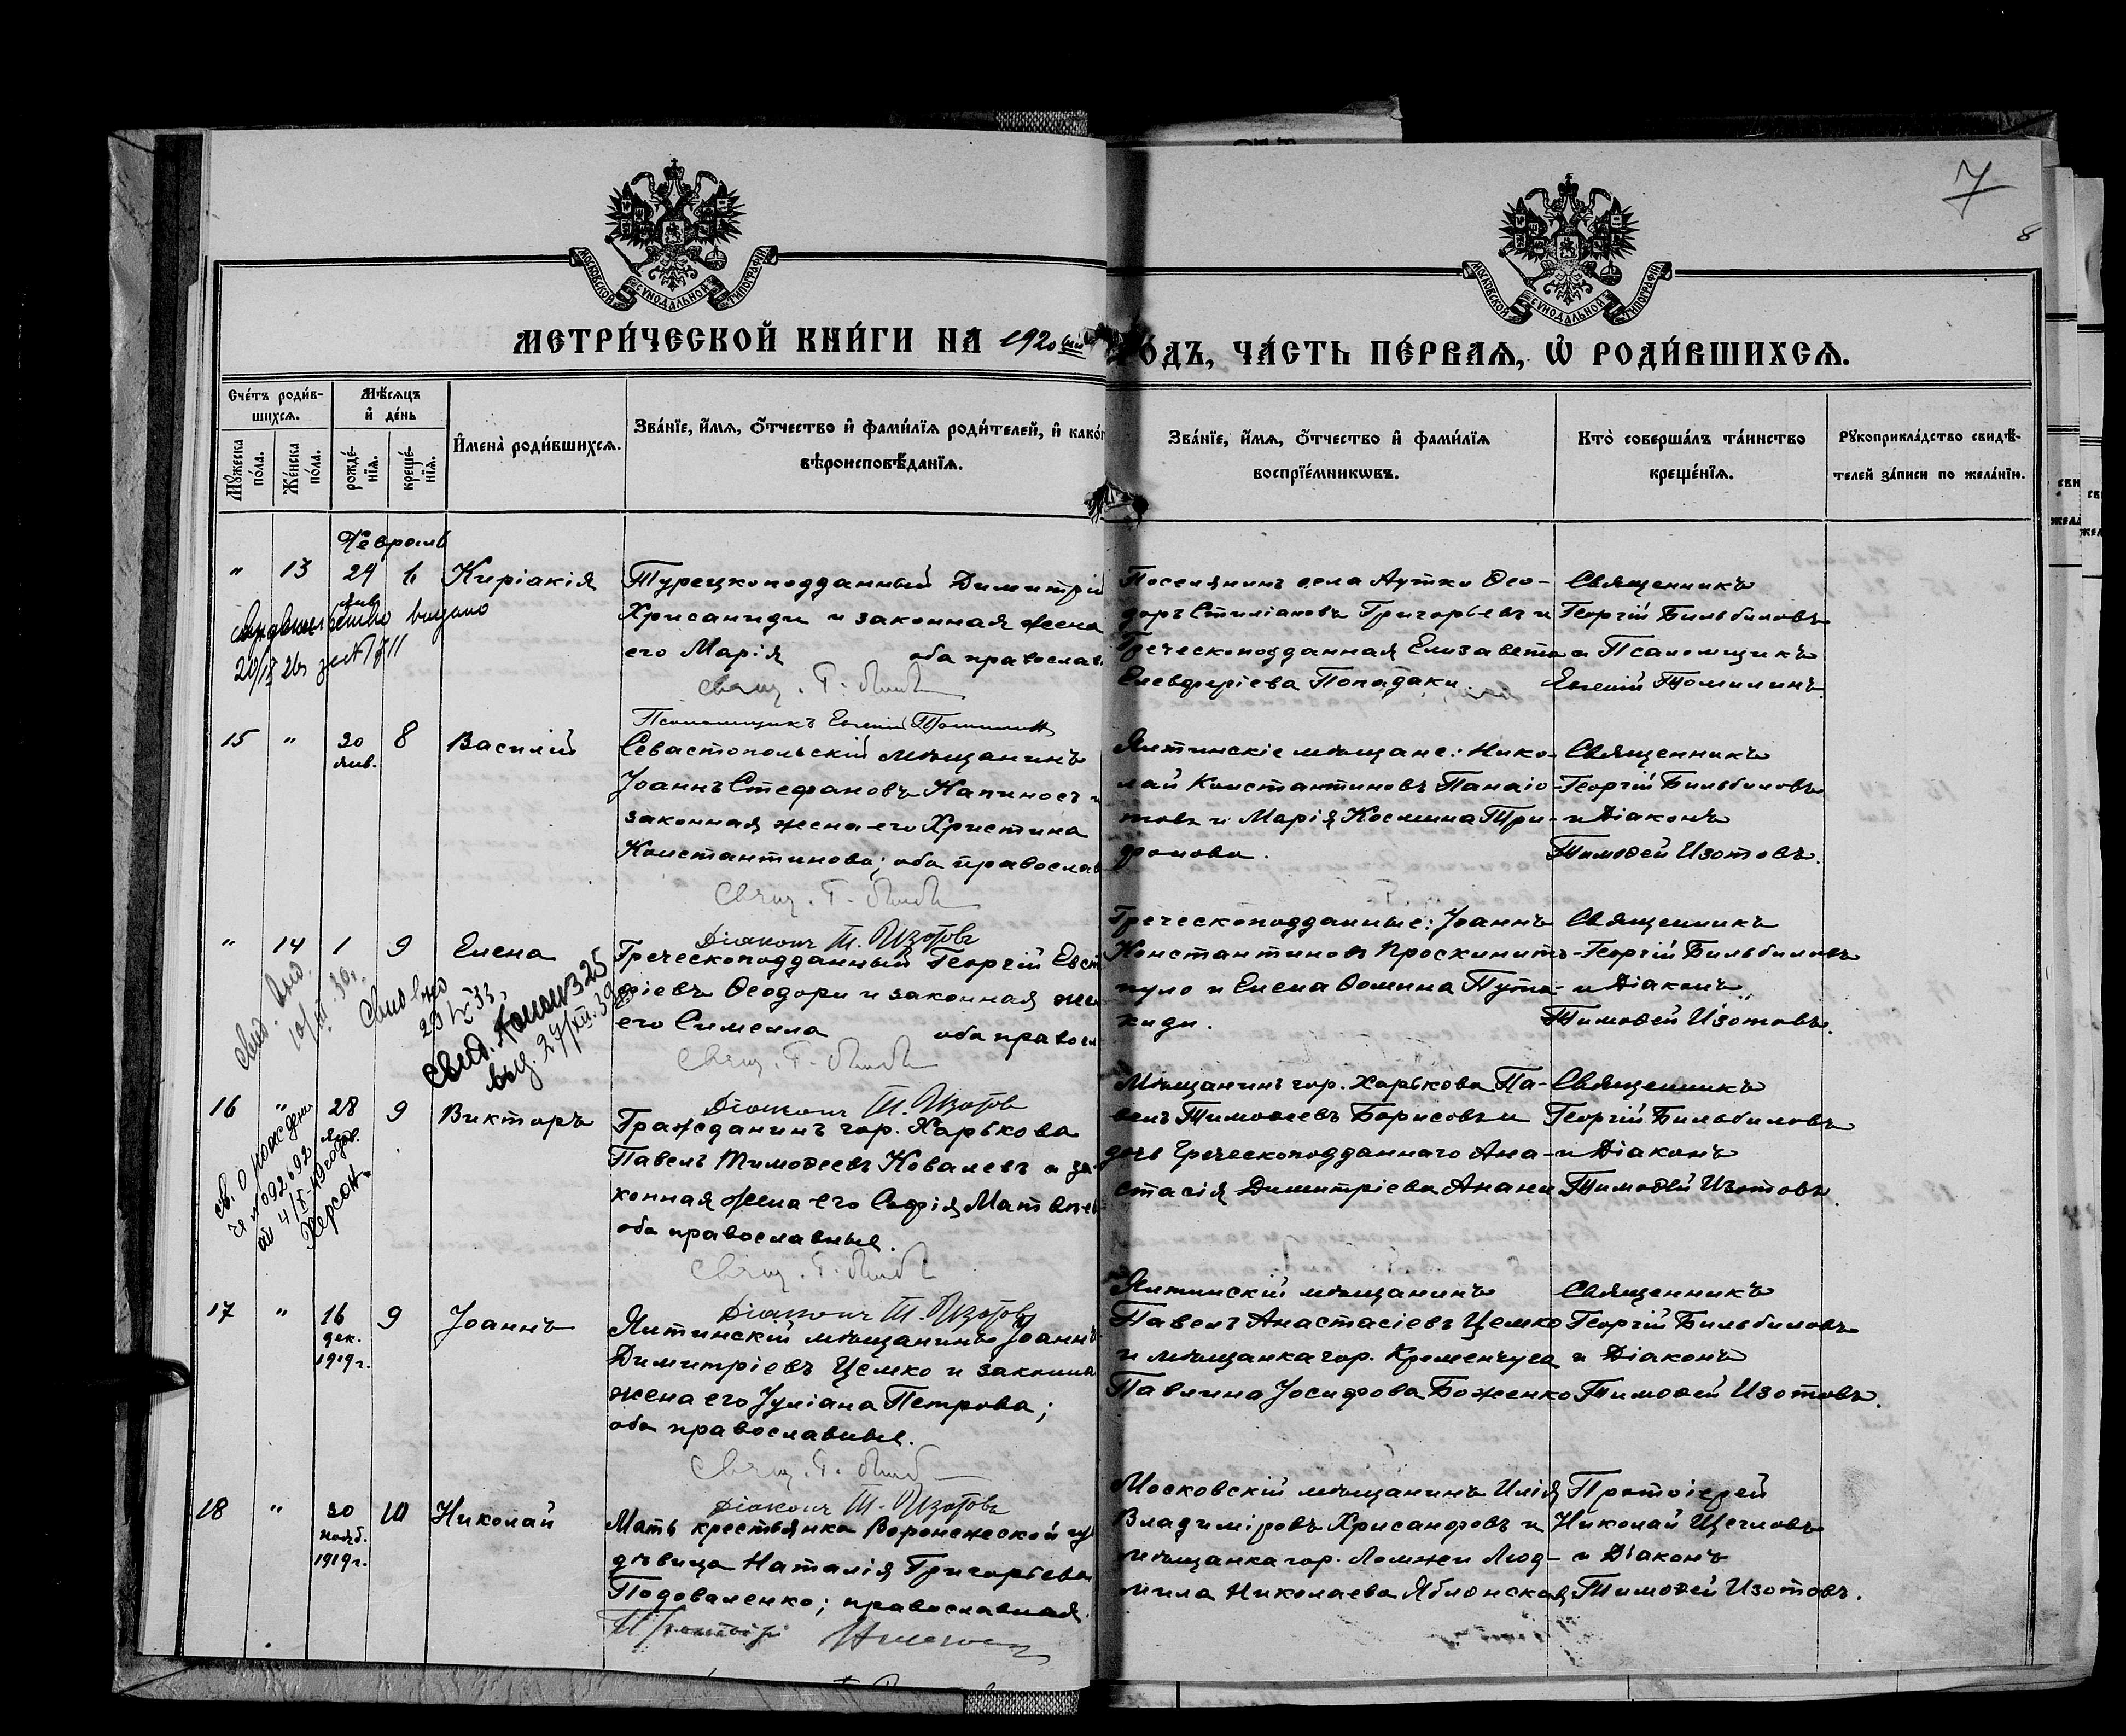 7
8
МОСКОВСКОЙ СѴНОДАЛЬНОЙ ТИПОГРАФІИ
МОСКОВСКОЙ СѴНОДАЛЬНОЙ ТИПОГРАФІИ
МЕТРИ́ЧЕСКОЙ КНИ́ГИ НА 1920 ГО́ДЪ, ЧА́СТЬ ПЕ́РВАѦ, Ѡ҆ РОДИ́ВШИХСѦ.
Сче́тъ роди́в-
шихсѧ.
Мѹ́жеска по́ла.
Же́нска по́ла.
Мѣ́сѧцъ
и҆ де́нь
рожде́-
нїѧ.
креще́-
нїѧ.
И҆мена̀ роди́вшихсѧ.
Зва́нїе, и҆́мѧ, ѻ҆́тчество и҆ фами́лїѧ роди́телей, и҆ како́г
вѣроисповѣ́данїѧ.
Зва́нїе, и҆́мѧ, ѻ҆́тчество и҆ фами́лїѧ
воспрїе́мникѡвъ.
Кто̀ соверша́лъ та́инство
креще́нїѧ.
Рѹкоприкла́дство свидѣ́-
телей за́писи по жела́нїю.
Февраль
" 13 24 янв. Киріакія
Турецкоподданный Димитрій
Хрисаниди и законная жена
его Марія оба православ
Свящ. Г.
Псаломщикъ Евгеній Томилинъ
Поселянинъ села Аутки Ѳео-
доръ Стиліановъ Григорьевъ и
Греческоподданная Елизавета
Елевферіева Попадаки.
Священникъ
Георгій Бильбиловъ
и Псаломщикъ
Евгеній Томилинъ
Свидетельство выдано
15 " 30 янв. 8 Василій
Севастопольскій мѣщанинъ
Іоаннъ Стефановъ Капиносъ и
законная жена его Христина
Константинова; оба православ
Свящ. Г.
Діаконъ Т. Изотовъ
Ялтинскіе мѣщане: Нико-
лай Константиновъ Панаіо-
товъ и Марія Космина Три-
фонова.
Священникъ
Георгій Бильбиловъ
и Діаконъ
Тимоѳей Изотовъ.
" 14 1 9 Елена
Греческоподданный Георгій Евст
фіевъ Ѳеодори и законная же
его Симелла оба правосл
Свящ. Г.
Діаконъ Т. Изотовъ
Греческоподданные: Іоаннъ
Константиновъ Проскинито-
пуло и Елена Ѳомина Пута-
киди.
Священникъ
Георгій Бильбиловъ
и Діаконъ
Тимоѳей Изотовъ.
свид. выд.
выд. 27/XII.39
16 " 28 янв. 9 Викторъ
Гражданинъ гор. Харькова
Павелъ Тимоѳеевъ Ковалевъ и за-
конная жена его Софія Матвѣев
оба православные.
Свящ. Г.
Діаконъ Т. Изотовъ
Мѣщанинъ гор. Харькова Па-
велъ Тимоѳеевъ Борисовъ и
дочь Греческоподданнаго Ана-
стасія Димитріева Анани
Священникъ
Георгій Бильбиловъ
и Діаконъ
Тимоѳей Изотовъ.
св. о рожден
Херсон
17 " 16 дек. 1919г. 9 Іоаннъ
Ялтинскій мѣщанинъ Іоаннъ
Димитріевъ Цемко и законна
жена его Іуліана Петрова;
оба православные.
Свящ. Г.
Діаконъ Т. Изотовъ
Ялтинскій мѣщанинъ
Павелъ Анастасіевъ Цемко
и мѣщанка гор. Кременчуга
Павлина Іосифова Боженко
Священникъ
Георгій Бильбиловъ
и Діаконъ
Тимоѳей Изотовъ.
18 " 30 нояб. 1919г. 10 Николай
Мать крестьянка Воронежской гу
дѣвица Наталія Григорьева
Подоваленко; православная.
Московскій мѣщанинъ Илія
Владиміровъ Хрисанфовъ и
мѣщанка гор. Ломжи Люд-
мила Николаева Яблонская
Протоіерей
Николай Щегловъ
и Діаконъ
Тимоѳей Изотовъ.